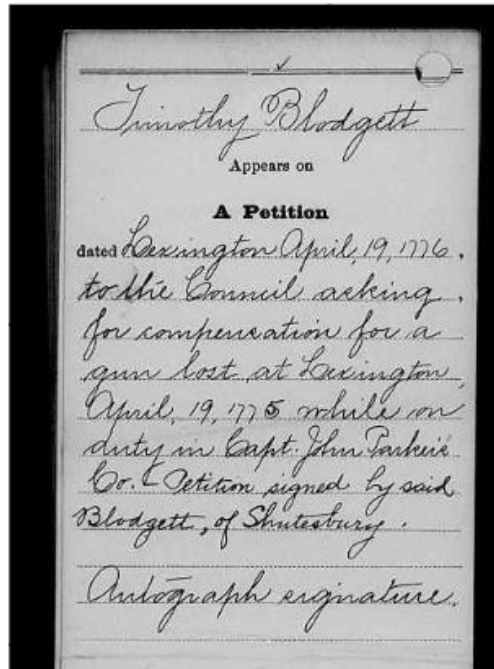 Timothy Blodgett
Appears on
A Petition
dated Lexington April, 19, 1776.
to the Council asking
for compensation for a
gun lost at Lexington
April, 19, 1775 while on
duty in Capt. John Parker's
Co. Petition signed by said
Blodgett, of Shutesbury.
Autograph signature.